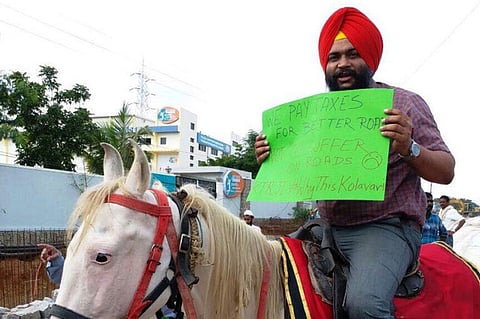 WE PAY TAXES
FOR BETTER ROADS
SUFFER
ON ROADS
#WhyThisKolavari